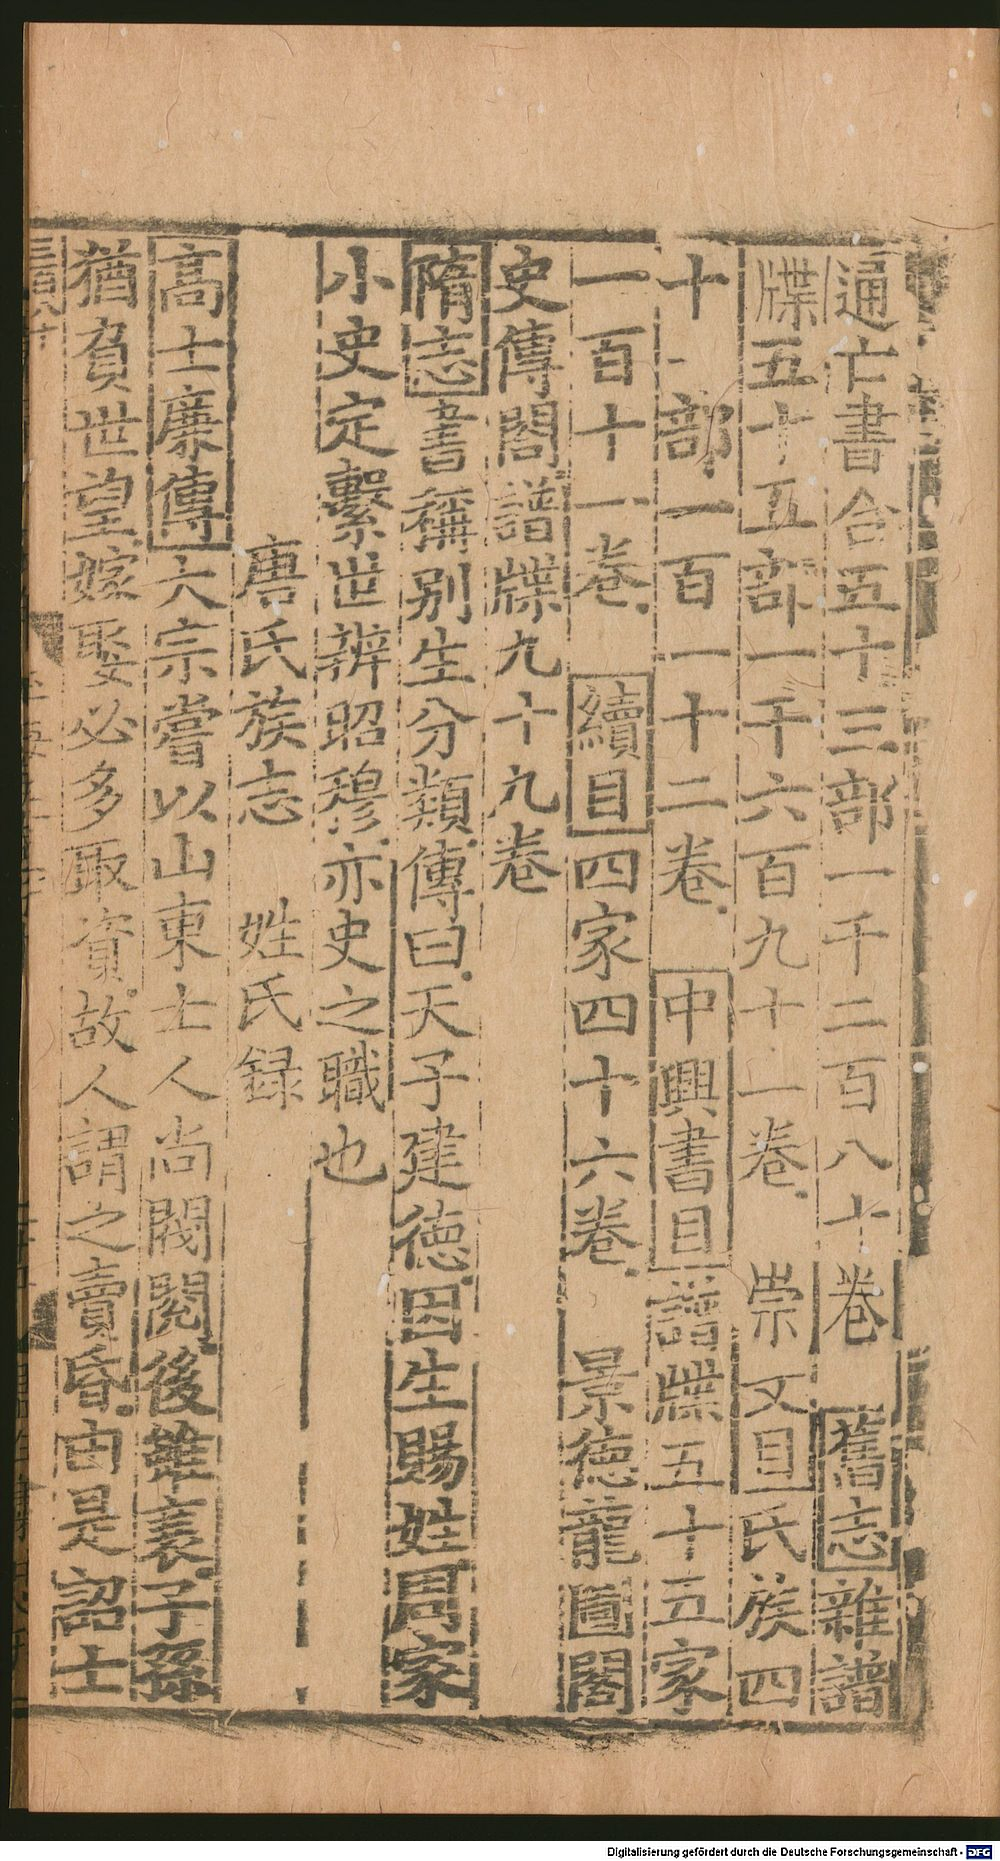 通亡書合五十三部一千二百八十卷 舊志雜譜
牒五十五部一千六百九十一卷 崇文目氏族四
十一部一百一十二卷 中興書目譜牒五十五家
一百十一卷 續目四家四十六卷 景德龍圖閣
史傳閣譜牒九十九卷
隋志書稱别生分類傳曰天子建德因生賜姓周家
小史定繫世辨昭穆亦史之職也
唐氏族志 姓氏録
高士廉傳太宗嘗以山東士人尚閥閱後雖衰子孫
猶負世望嫁娶必多取資故人謂之賣昏由是詔士
Digitalisierung gefördert durch die Deutsche Forschungsgemeinschaft - DFG